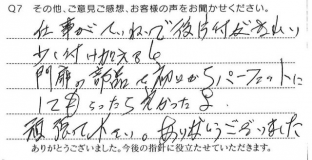 Q7 その他、ご意見ご感想、お客様の声をお聞かせください。
仕事がていねいで後片付が
少し付け加える
門扉の部品も初めからパーフェクトに
してもらったら良かった
頑張って下さい。ありがとうございました
ありがとうございました。今後の指針に役立たせていただきます。